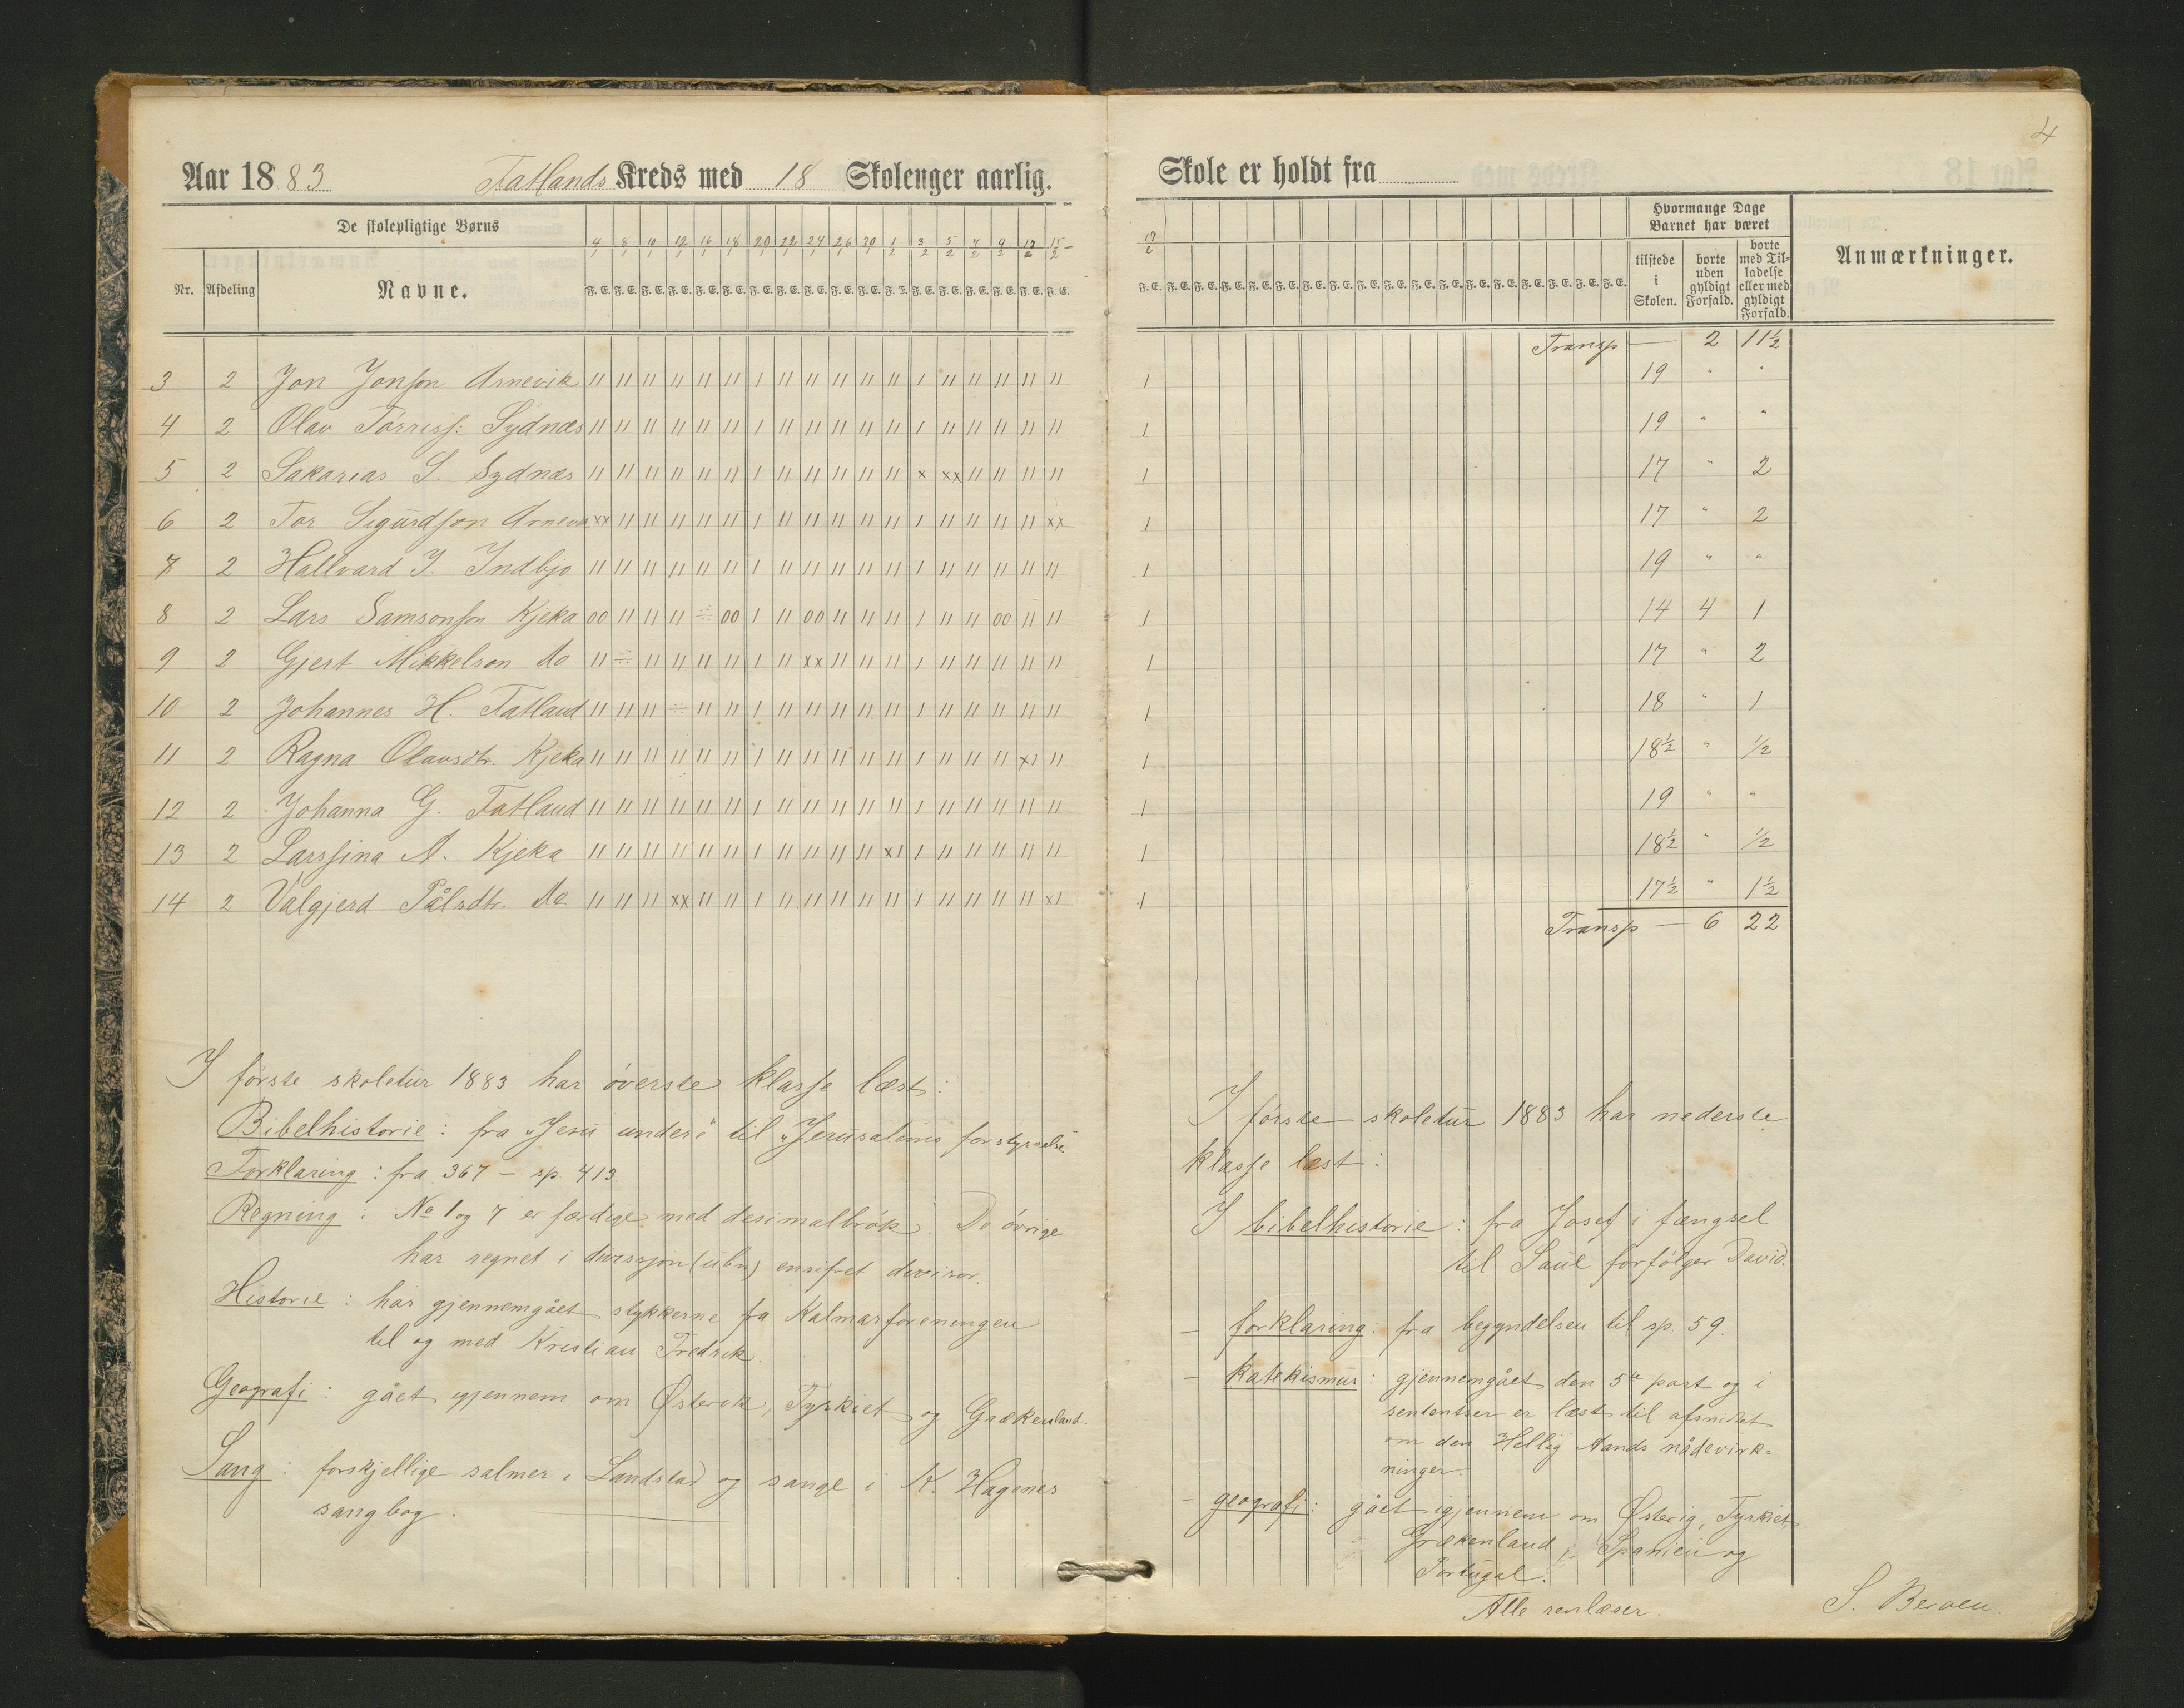 Aar 1883 Fatlands Kreds med 18 Skolenger aarlig.
De skolepligtige Børns
4/1 8/1 10/1 12/1 16/1 18/1 20/1 22/1 24/1 26/1 30/1 1/2 3/2 5/2 7/2 9/2 13/2 15/2
Nr. Afdeling Navne. F. E. F. E. F. E. F. E. F. E. F. E. F. E. F. E. F. E. F. E. F. E. F. E. F. E. F. E. F. E. F. E. F. E. F. E.
3 2 Jon Jonson Arnevik 11 11 11 11 11 11 1 11 11 11 11 11 1 11 11 11 11 11
4 2 Olav Tórriss: Sydnæs 11 11 11 11 11 11 1 11 11 11 11 11 1 11 11 11 11 11
5 2 Sakarias S. Sydnæs 11 11 11 11 11 11 1 11 11 11 11 11 x xx 11 11 11 11
6 2 Tor Sigurdson Arnevi xx 11 11 11 11 11 1 11 11 11 11 11 1 11 11 11 11 xx
7 2 Hallvard J. Indbjo 11 11 11 11 11 11 1 11 11 11 11 11 1 11 11 11 11 11
8 2 Lars Samsonson Kjeka 00 11 11 11 ÷ 00 1 11 00 11 11 11 1 11 11 00 11 11
9 2 Gjert Mikkelson do 11 ÷ 11 11 11 11 1 11 xx 11 11 11 1 11 11 11 11 11
10 2 Johannes H. Fatland 11 11 11 ÷ 11 11 1 11 11 11 11 11 1 11 11 11 11 11
11 2 Ragna Olavsdtr. Kjeka 11 11 11 11 11 11 1 11 11 11 11 11 1 11 11 11 x1 11
12 2 Johanna G. Fatland 11 11 11 11 11 11 1 11 11 11 11 11 1 11 11 11 11 11
13 2 Larssina A. Kjeka 11 11 11 11 11 11 1 11 11 11 11 x1 1 11 11 11 11 11
14 2 Valgjerd Pålsdtr. do 11 11 11 xx 11 11 1 11 11 11 11 11 1 11 11 11 11 x1
I første skoletur 1883 har óverste klasse læst:
Bibelhistorie: fra „Jesu undere" til „Jerusalems forstyrrelse"
Forklaring: fra 367 - sp. 413.
Regning: No 1 og 7 er færdige med desimalbrók. De óvrige
har regnet i divisjon (ubn) ensifret divisor.
Historie: har gjennemgået stykkerne fra Kalmarforeningen
til og med Kristian Fredrik.
Geografi: gået igjennem om Østerik, Tyrkiet og Grækenland.
Sang: forskjellige salmer i Landstad og sange i K. Hagenes
sangbog.
4
Skole er holdt fra
Hvormange Dage Barnet har været
17/2
F. E. F. E. F. E. F. E. F. E. F. E. F. E. F. E. F. E. F. E. F. E. F. E. F. E. F. E. F. E. F. E. F. E. F. E.
tilstede i Skolen.
borte uden gyldigt Forfald.
borte med Tilladelse eller med gyldigt Forfald.
Anmærkninger.
Transp — 2 11½
1 19 " "
1 19 " "
1 17 " 2
1 17 " 2
1 19 " "
1 14 4 1
1 17 " 2
1 18 " 1
1 18½ " ½
1 19 " "
1 18½ " ½
1 17½ " 1½
Transp — 6 22
I første skoletur 1883 har nederste
klasse læst:
I bibelhistorie: fra Josef i fængsel
til Saul forfólger David.
- forklaring: fra begyndelsen til sp. 59.
- katekismus: gjennemgået den 5te part og i
sententser er læst til afsnittet
om den Hellig Aands nådevirk=
ninger.
- geografi: gået igjennem om Østerig, Tyrkiet
Grækenland, Spanien og
Portugal.
Alle renlæser.
S. Berven.